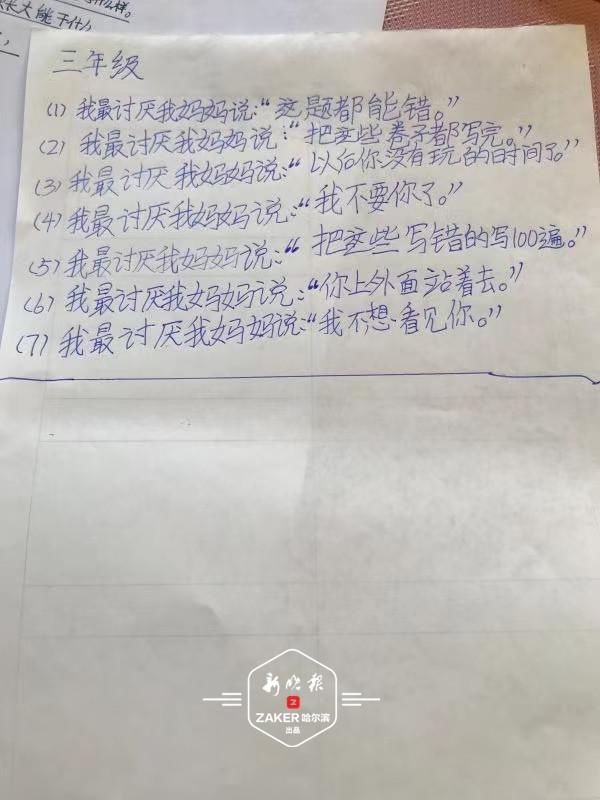 长大能干什么
三年级
(1) 我最讨厌我妈妈说:“这题都能错。”
(2) 我最讨厌我妈妈说:“把这些卷子都写完。”
(3) 我最讨厌我妈妈说:“以后你没有玩的时间了。”
(4) 我最讨厌我妈妈说:“我不要你了。”
(5) 我最讨厌我妈妈说:“把这些写错的写100遍。”
(6) 我最讨厌我妈妈说:“你上外面站着去。”
(7) 我最讨厌我妈妈说:“我不想看见你。”
新晚报
ZAKER哈尔滨
出品